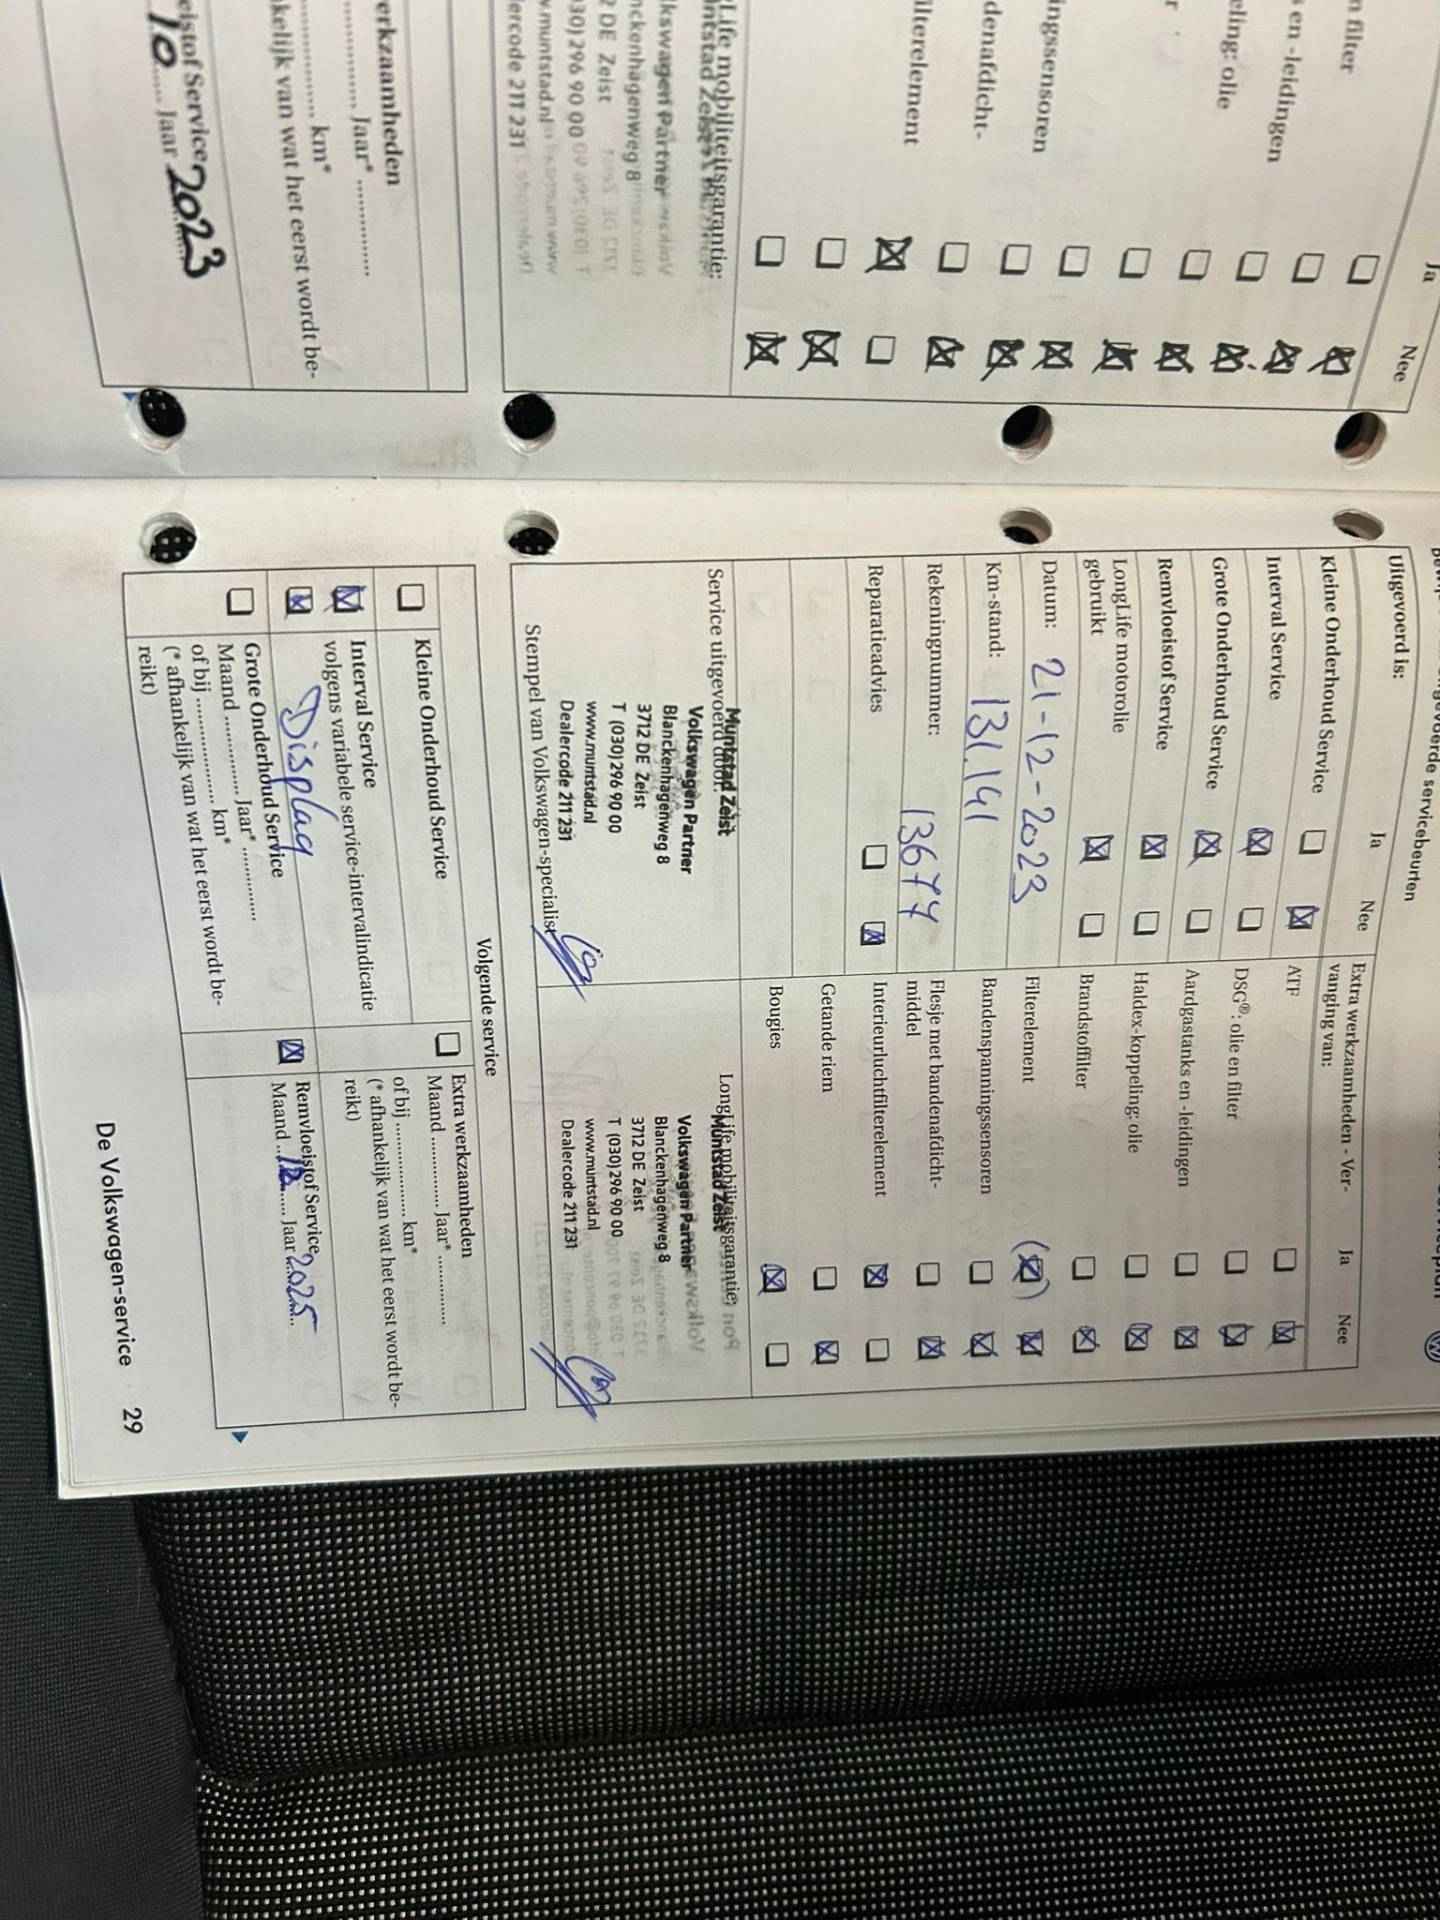 n filter
s en -leidingen
eling: olie
ingssensoren
denafdicht-
ilterelement
Ja
Nee
gLife mobiliteitsgarantie:
untstad Zeist
lkswagen Partner
nckenhagenweg 8
2 DE Zeist
030) 296 90 00
w.muntstad.nl
lercode 211 231
erkzaamheden
Jaar*
km*
kelijk van wat het eerst wordt be-
eistof Service
10 Jaar 2023
servicebeurten
Uitgevoerd is:
Ja
Nee
Kleine Onderhoud Service
Interval Service
Grote Onderhoud Service
Remvloeistof Service
LongLife motorolie
gebruikt
Datum: 21-12-2023
Km-stand: 131.191
Rekeningnummer: 13677
Reparatieadvies
Extra werkzaamheden - Ver-
vanging van:
Ja
Nee
ATF
DSG®: olie en filter
Aardgastanks en -leidingen
Haldex-koppeling: olie
Brandstoffilter
Filterelement
Bandenspanningssensoren
Flesje met bandenafdicht-
middel
Interieurluchtfilterelement
Getande riem
Bougies
Service uitgevoerd door:
Muntstad Zeist
Volkswagen Partner
Blanckenhagenweg 8
3712 DE Zeist
T (030) 296 90 00
www.muntstad.nl
Dealercode 211 231
Stempel van Volkswagen-specialist
LongLife mobiliteitsgarantie:
Muntstad Zeist
Volkswagen Partner
Blanckenhagenweg 8
3712 DE Zeist
T (030) 296 90 00
www.muntstad.nl
Dealercode 211 231
Volgende service
Kleine Onderhoud Service
Interval Service
volgens variabele service-intervalindicatie
Display
Grote Onderhoud Service
Maand ............... Jaar* ...............
of bij ............... km*
(* afhankelijk van wat het eerst wordt be-
reikt)
Extra werkzaamheden
Maand ............... Jaar* ...............
of bij ............... km*
(* afhankelijk van wat het eerst wordt be-
reikt)
Remvloeistof Service
Maand 12 Jaar 2025
De Volkswagen-service 29